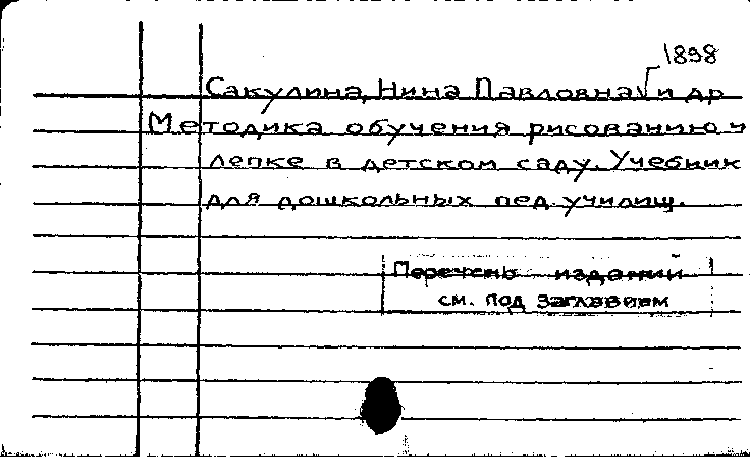 1898
Сакулина, Нина Павловна √ и др
Методика обучения рисованию и
лепке в детском саду. Учебник
для дошкольных пед. училищ.
Перечень изданий
см. под заглавием